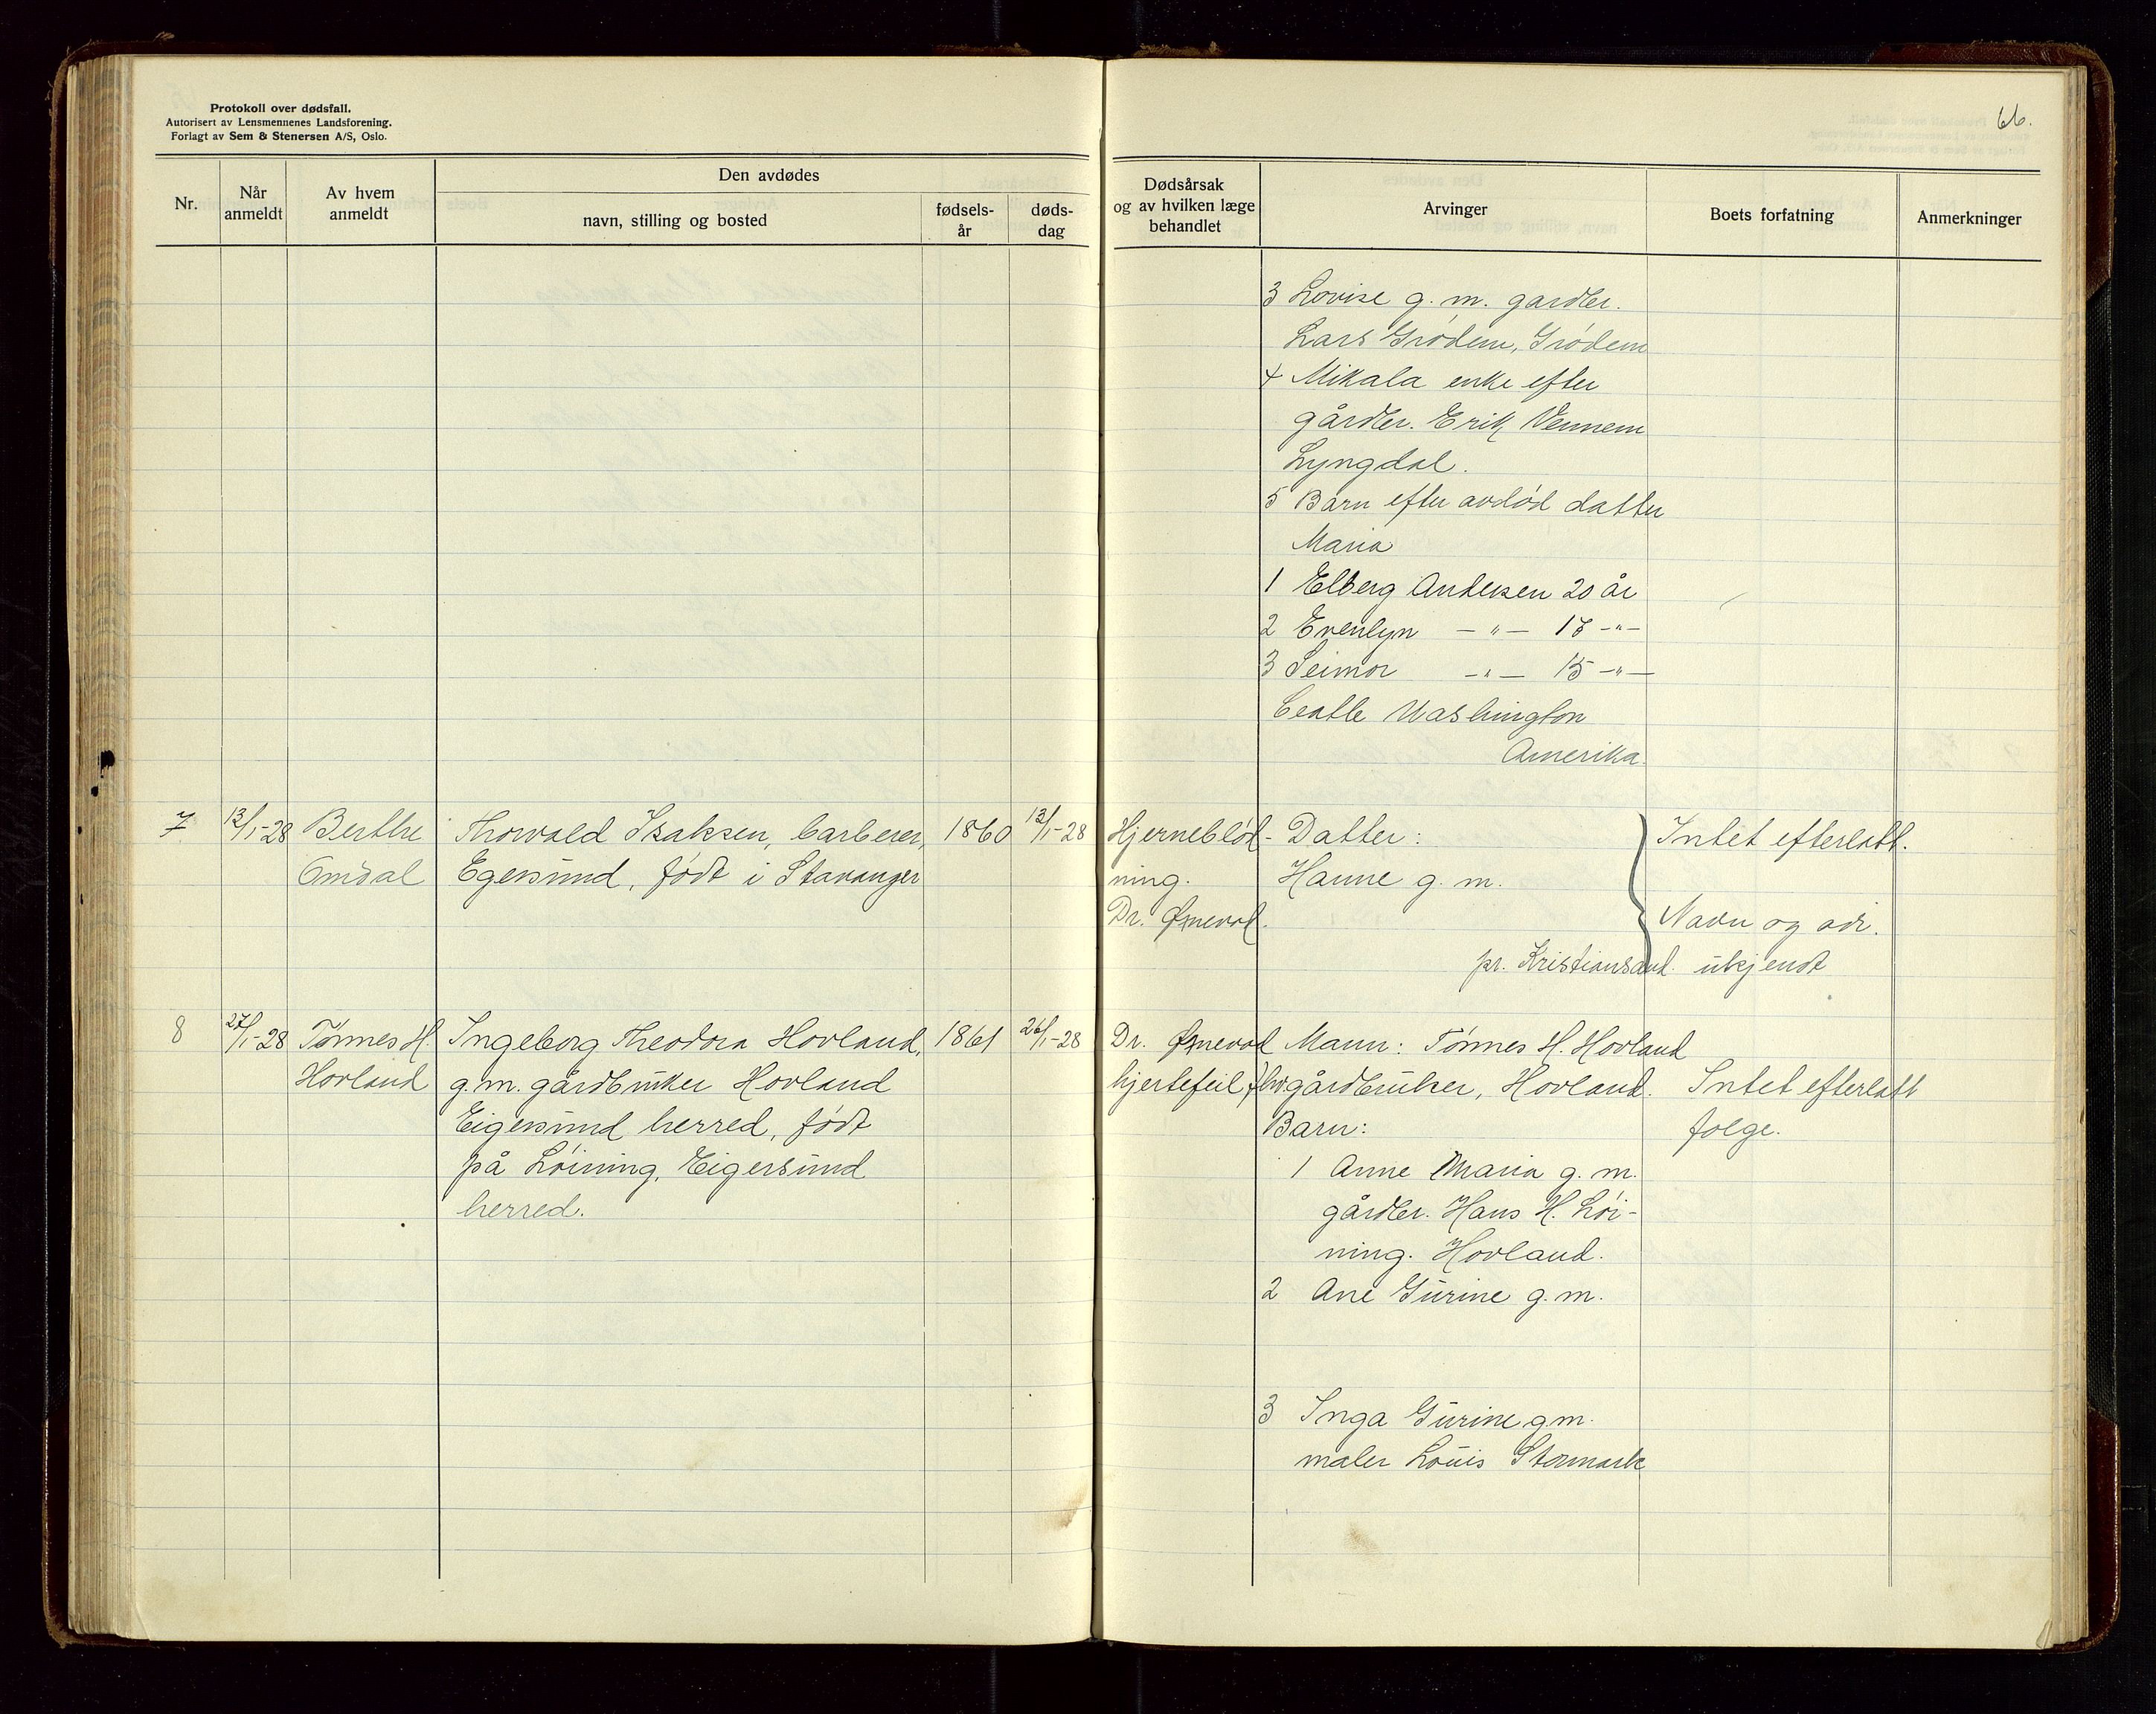 Protokoll over dødsfall.
Autorisert av Lensmennenes Landsforening.
Forlagt av Sem & Stenersen A/S, Oslo.
66.
Nr.
Når anmeldt
Av hvem anmeldt
Den avdødes
navn, stilling og bosted
fødsels-år
døds-dag
Dødsårsak og av hvilken læge behandlet
Arvinger
Boets forfatning
Anmerkninger
3 Lovise g. m. gardbr.
Lars Grødem, Grødem
4 Mikala enke efter
gårdbr. Erik Vennem
Lyngdal.
5 Barn efter avdød datter
Maria
1 Elberg Andersen 20 år
2 Evenlyn — " — 17 -"-
3 Seimor — " — 15 -"-
Ceatle Washington
Amerika
7 13/1-28 Berthe Thorvald Isaksen, barberer, 1860 13/1-28 Hjerneblød- Datter: Intet efterlatt.
Omdal Egersund, født i Stavanger ning. Hanne g. m.
Dr. Navn og adr.
pr. Kristiansand. ukjendt
8 27/1-28 Tønnes H. Ingeborg Theodora Hovland, 1861 26/1-28 Dr. Mann: Tønnes H. Hovland
Hovland g.m. gårdbruker Hovland hjertefeil gårdbruker, Hovland. Intet efterlatt
Eigersund herred, født Barn: følge.
på Løining, Eigersund 1 Anne Maria g. m.
herred. gårdbr. Hans H. Løi-
ning. Hovland.
2 Ane Gurine g. m.
3 Inga Gurine g.m.
maler Louis Stormark